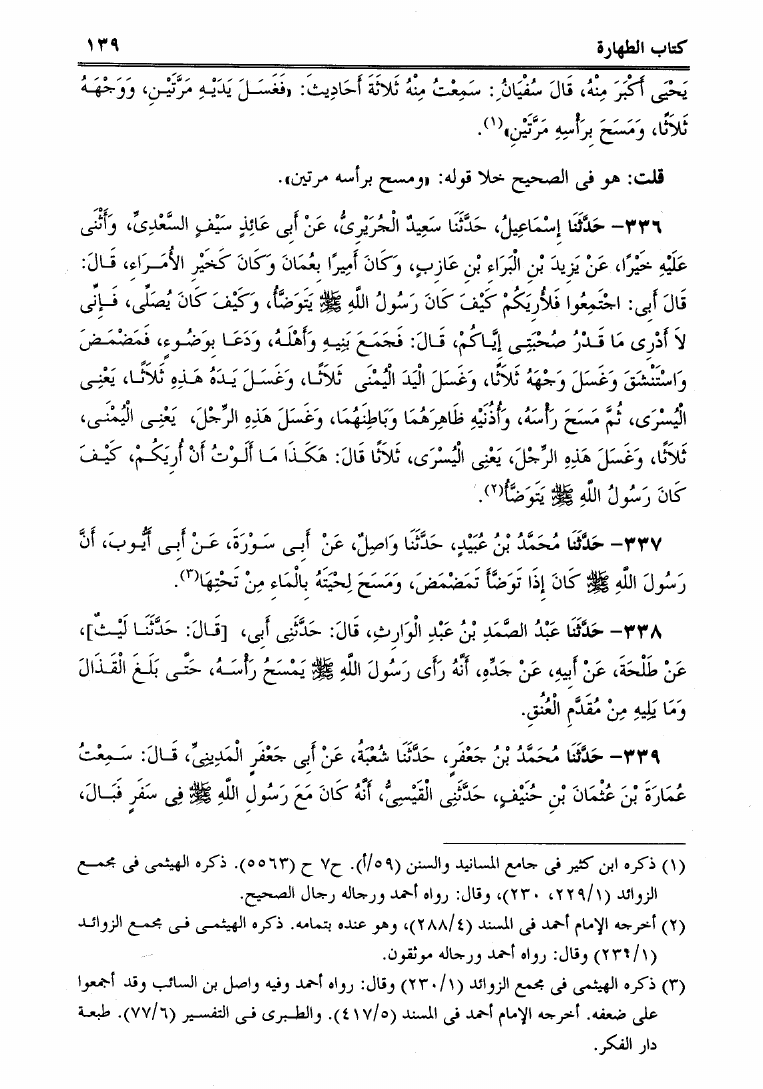 كتاب الطهارة ١٣٩
يَحْيَى أَكْبَرَ مِنْهُ، قَالَ سُفْيَانُ: سَمِعْتُ مِنْهُ ثَلاثَةَ أَحَادِيثَ: «فَغَسَلَ يَدَيْهِ مَرَّتَيْنِ، وَوَجْهَهُ
ثَلاثًا، وَمَسَحَ بِرَأْسِهِ مَرَّتَيْنِ»(١).
قلت: هو فى الصحيح خلا قوله: «ومسح برأسه مرتين».
٣٣٦- حَدَّثَنَا إِسْمَاعِيلُ، حَدَّثَنَا سَعِيدٌ الْجُرَيْرِىُّ، عَنْ أَبِى عَائِذٍ سَيْفٍ السَّعْدِىِّ، وَأَثْنَى
عَلَيْهِ خَيْرًا، عَنْ يَزِيدَ بْنِ الْبَرَاءِ بْنِ عَازِبٍ، وَكَانَ أَمِيرًا بِعُمَانَ وَكَانَ كَخَيْرِ الأُمَرَاءِ، قَالَ:
قَالَ أَبِى: اجْتَمِعُوا فَلأُرِيَكُمْ كَيْفَ كَانَ رَسُولُ اللَّهِ ﷺ يَتَوَضَّأُ، وَكَيْفَ كَانَ يُصَلِّى، فَإِنِّى
لاَ أَدْرِى مَا قَدْرُ صُحْبَتِى إِيَّاكُمْ، قَالَ: فَجَمَعَ بَنِيهِ وَأَهْلَهُ، وَدَعَا بِوَضُوءٍ، فَمَضْمَضَ
وَاسْتَنْشَقَ وَغَسَلَ وَجْهَهُ ثَلاثًا، وَغَسَلَ الْيَدَ الْيُمْنَى ثَلاثًا، وَغَسَلَ يَدَهُ هَذِهِ ثَلاثًا، يَعْنِى
الْيُسْرَى، ثُمَّ مَسَحَ رَأْسَهُ، وَأُذُنَيْهِ ظَاهِرَهُمَا وَبَاطِنَهُمَا، وَغَسَلَ هَذِهِ الرِّجْلَ، يَعْنِى الْيُمْنَى،
ثَلاثًا، وَغَسَلَ هَذِهِ الرِّجْلَ، يَعْنِى الْيُسْرَى، ثَلاثًا قَالَ: هَكَذَا مَا أَلَوْتُ أَنْ أُرِيَكُمْ، كَيْفَ
كَانَ رَسُولُ اللَّهِ ﷺ يَتَوَضَّأُ(٢).
٣٣٧- حَدَّثَنَا مُحَمَّدُ بْنُ عُبَيْدٍ، حَدَّثَنَا وَاصِلٌ، عَنْ أَبِى سَوْرَةَ، عَنْ أَبِى أَيُّوبَ، أَنَّ
رَسُولَ اللَّهِ ﷺ كَانَ إِذَا تَوَضَّأَ تَمَضْمَضَ، وَمَسَحَ لِحْيَتَهُ بِالْمَاءِ مِنْ تَحْتِهَا(٣).
٣٣٨- حَدَّثَنَا عَبْدُ الصَّمَدِ بْنُ عَبْدِ الْوَارِثِ، قَالَ: حَدَّثَنِى أَبِى، [قَالَ: حَدَّثَنَا لَيْثٌ]،
عَنْ طَلْحَةَ، عَنْ أَبِيهِ، عَنْ جَدِّهِ، أَنَّهُ رَأَى رَسُولَ اللَّهِ ﷺ يَمْسَحُ رَأْسَهُ، حَتَّى بَلَغَ الْقَذَالَ
وَمَا يَلِيهِ مِنْ مُقَدَّمِ الْعُنُقِ.
٣٣٩- حَدَّثَنَا مُحَمَّدُ بْنُ جَعْفَرٍ، حَدَّثَنَا شُعْبَةُ، عَنْ أَبِى جَعْفَرٍ الْمَدِينِىِّ، قَالَ: سَمِعْتُ
عُمَارَةَ بْنَ عُثْمَانَ بْنِ حُنَيْفٍ، حَدَّثَنِى الْقَيْسِىُّ، أَنَّهُ كَانَ مَعَ رَسُولِ اللَّهِ ﷺ فِى سَفَرٍ فَبَالَ،
(١) ذكره ابن كثير فى جامع المسانيد والسنن (٥٩/أ). ح٧ ح (٥٥٦٣). ذكره الهيثمى فى مجمع
الزوائد (٢٢٩/١، ٢٣٠)، وقال: رواه أحمد ورجاله رجال الصحيح.
(٢) أخرجه الإمام أحمد فى المسند (٢٨٨/٤)، وهو عنده بتمامه. ذكره الهيثمى فى مجمع الزوائد
(٢٣٩/١) وقال: رواه أحمد ورجاله موثقون.
(٣) ذكره الهيثمى فى مجمع الزوائد (٢٣٠/١) وقال: رواه أحمد وفيه واصل بن السائب وقد أجمعوا
على ضعفه. أخرجه الإمام أحمد فى المسند (٤١٧/٥). والطبرى فى التفسير (٧٧/٦). طبعة
دار الفكر.